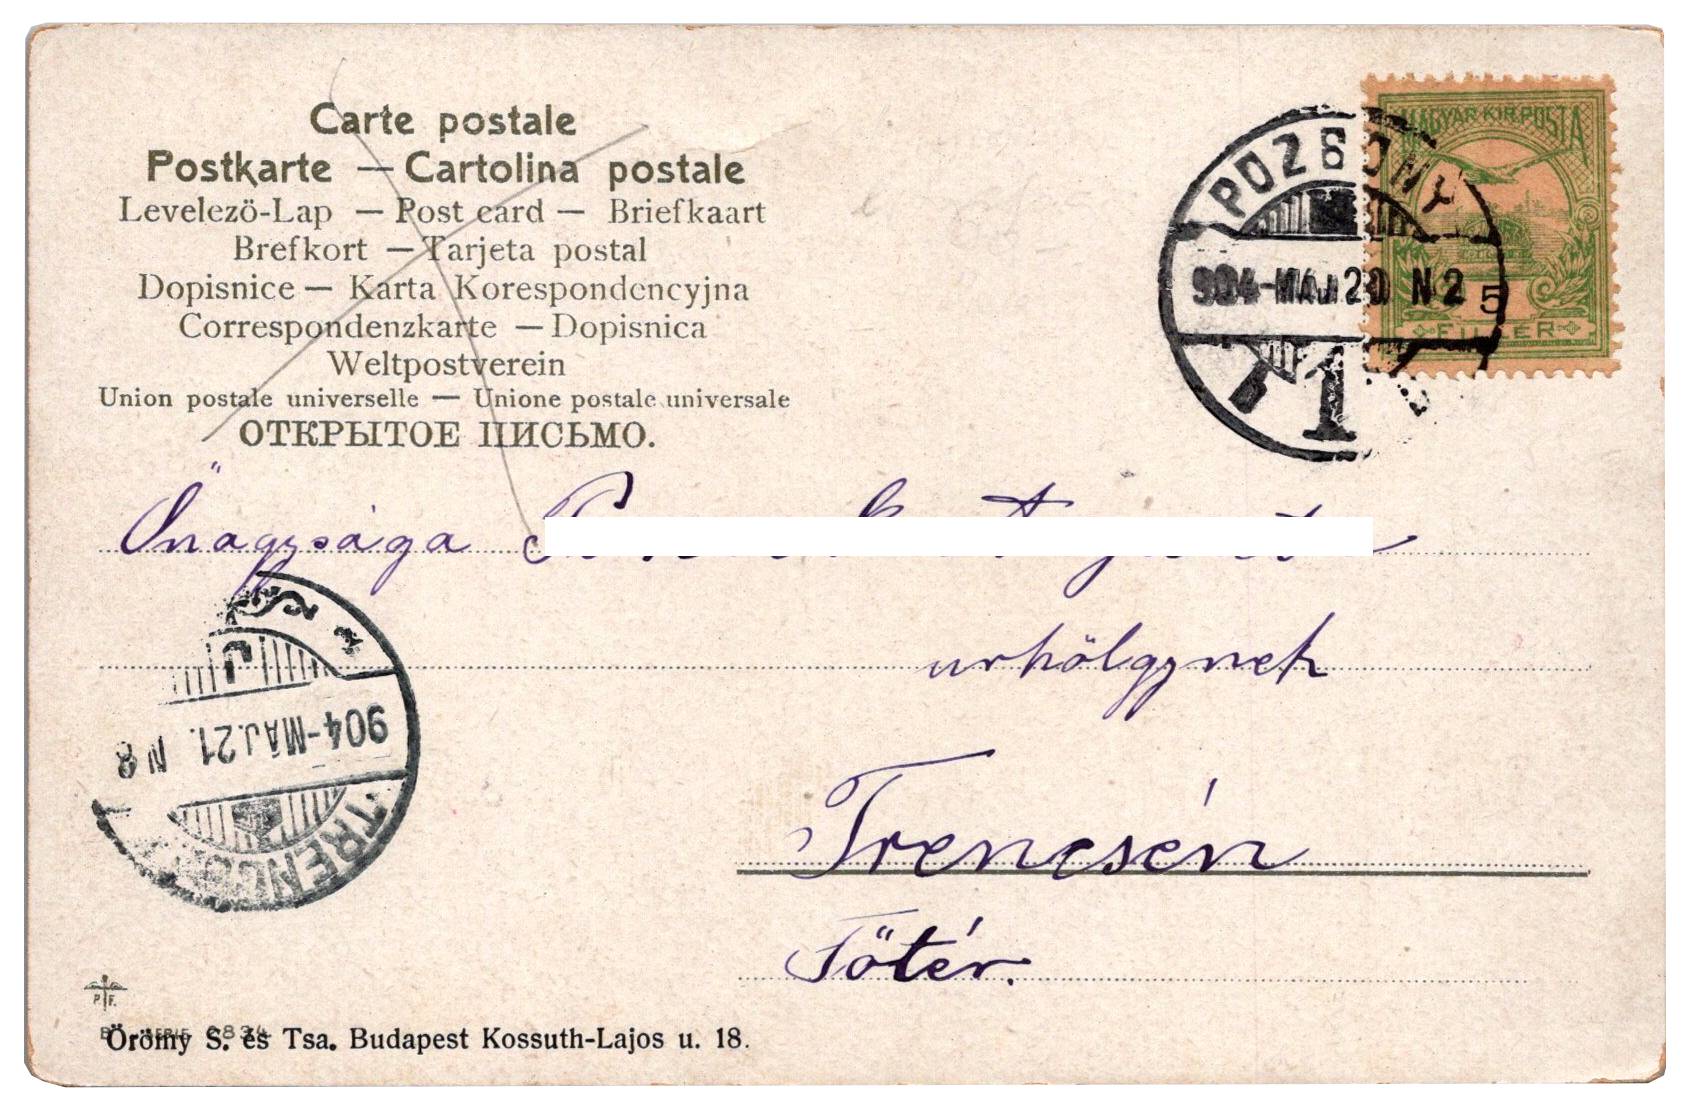 Carte postale
Postkarte — Cartolina postale
Levelező-Lap — Post card — Briefkaart
Brefkort — Tarjeta postal
Dopisnice — Karta Korespondencyjna
Correspondenzkarte — Dopisnica
Weltpostverein
Union postale universelle — Unione postale universale
ОТКРЫТОЕ ПИСЬМО.
MAGYAR KIR. POSTA
5
FILLÉR
POZSONY
904-MÁJ 20 N2
1
Önagysága
urhölgynek
Trencsén
Főtér.
904-MÁJ.21. N8
TRENCSÉN
P. F.
SERIE 6834
Örömy S. és Tsa. Budapest Kossuth-Lajos u. 18.